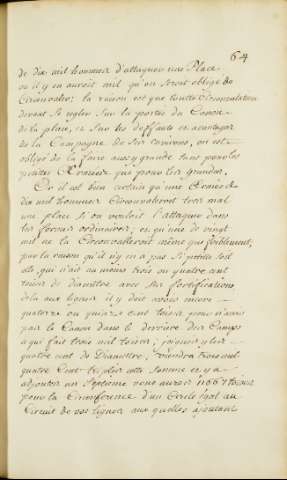 64
de dix mil hommes d'attaquer une Place
ou il y en auroit mil qu'on seroit obligé de
Circonvaler: la raison est que toutte Circonvalation
devant se regler sur la portée du Canon
de la place, et sur les deffauts et avantages
de la Campagne de ses environs, on est
obligé de la faire aussy grande pour les
petites Armées que pour les grandes.
Or il est bien certain qu'une Armée de
dix mil hommes Circonvaleroit tres mal
une place si on vouloit l'attaquer dans
les formes ordinaires; et qu'une de vingt
mil ne la Circonvaleroit même que foiblement,
par la raison qu'il n'y en a pas si petite soit
elle, qui n'ait au moins trois ou quatre cent
toises de diametre avec ses fortifications
de la aux lignes il y doit avoir encore
quatorze ou quinze cent toises pour n'avoir
pas le Canon dans le derriere des Camps
ce qui fait trois mil toises, joignez y les
quatre cent de Diamettre, viendra trois mil
quatre Cent triplez cette somme et y
adjoutez un Septieme vous aurez toises
pour la Circonference d'un Cercle égal au
Circuit de vos lignes aux quelles ajoutant